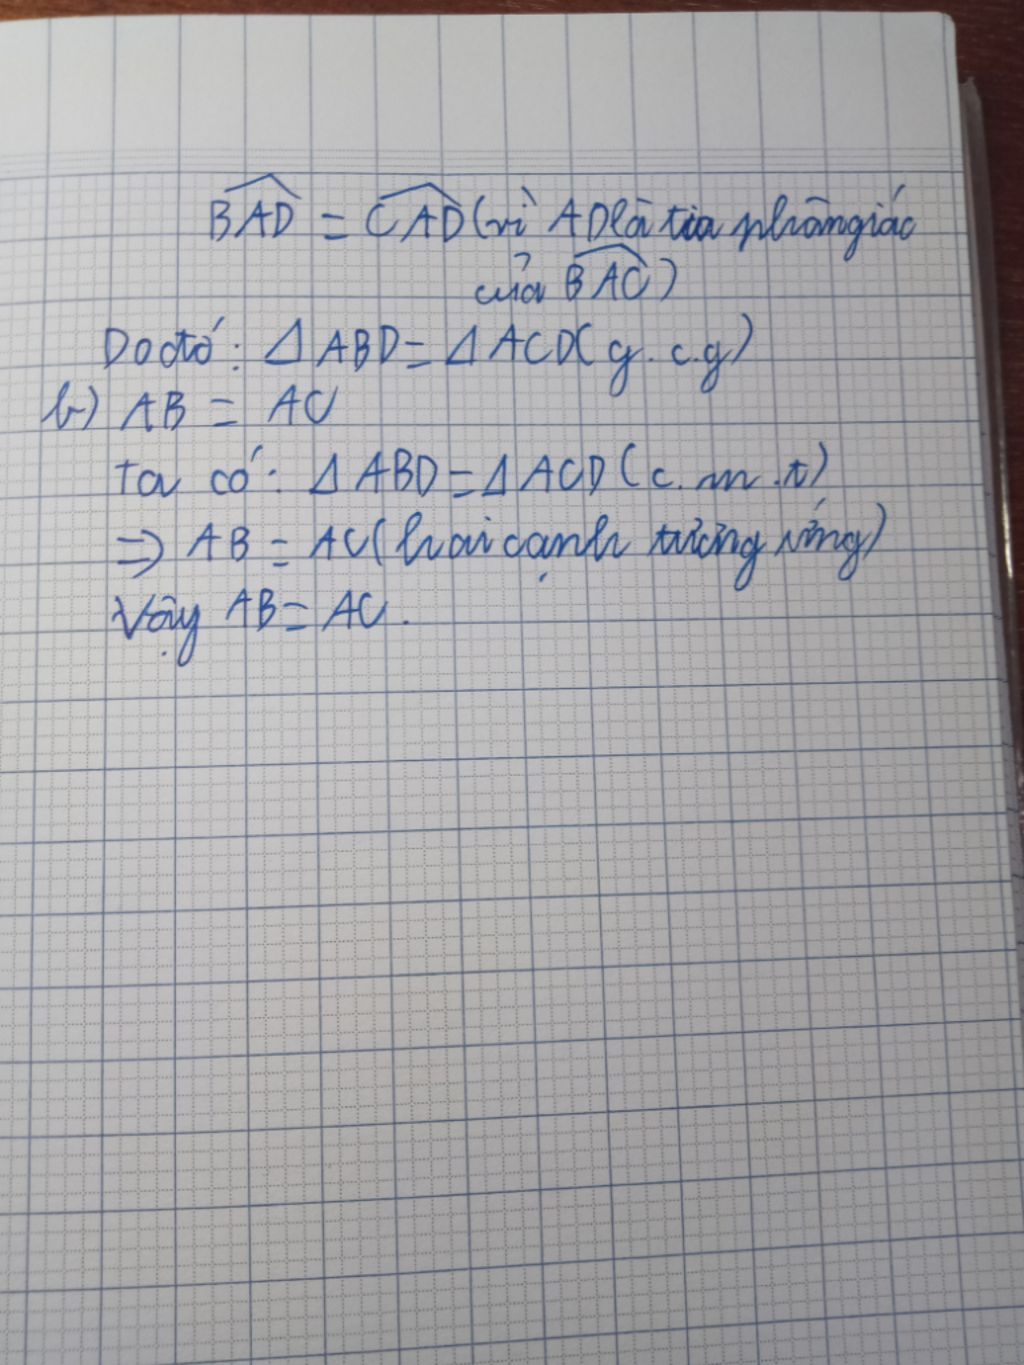 BAD = CAD (vì AD là tia phân giác
của BAC)
Do đó: Δ ABD = Δ ACD (g.c.g)
b) AB = AC
Ta có: Δ ABD = Δ ACD (c.m.t)
=> AB = AC (hai cạnh tương ứng)
Vậy AB = AC.